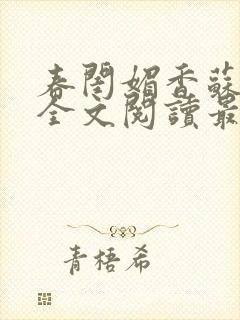 春閨媚香蘇
全文閱讀最
青梧希